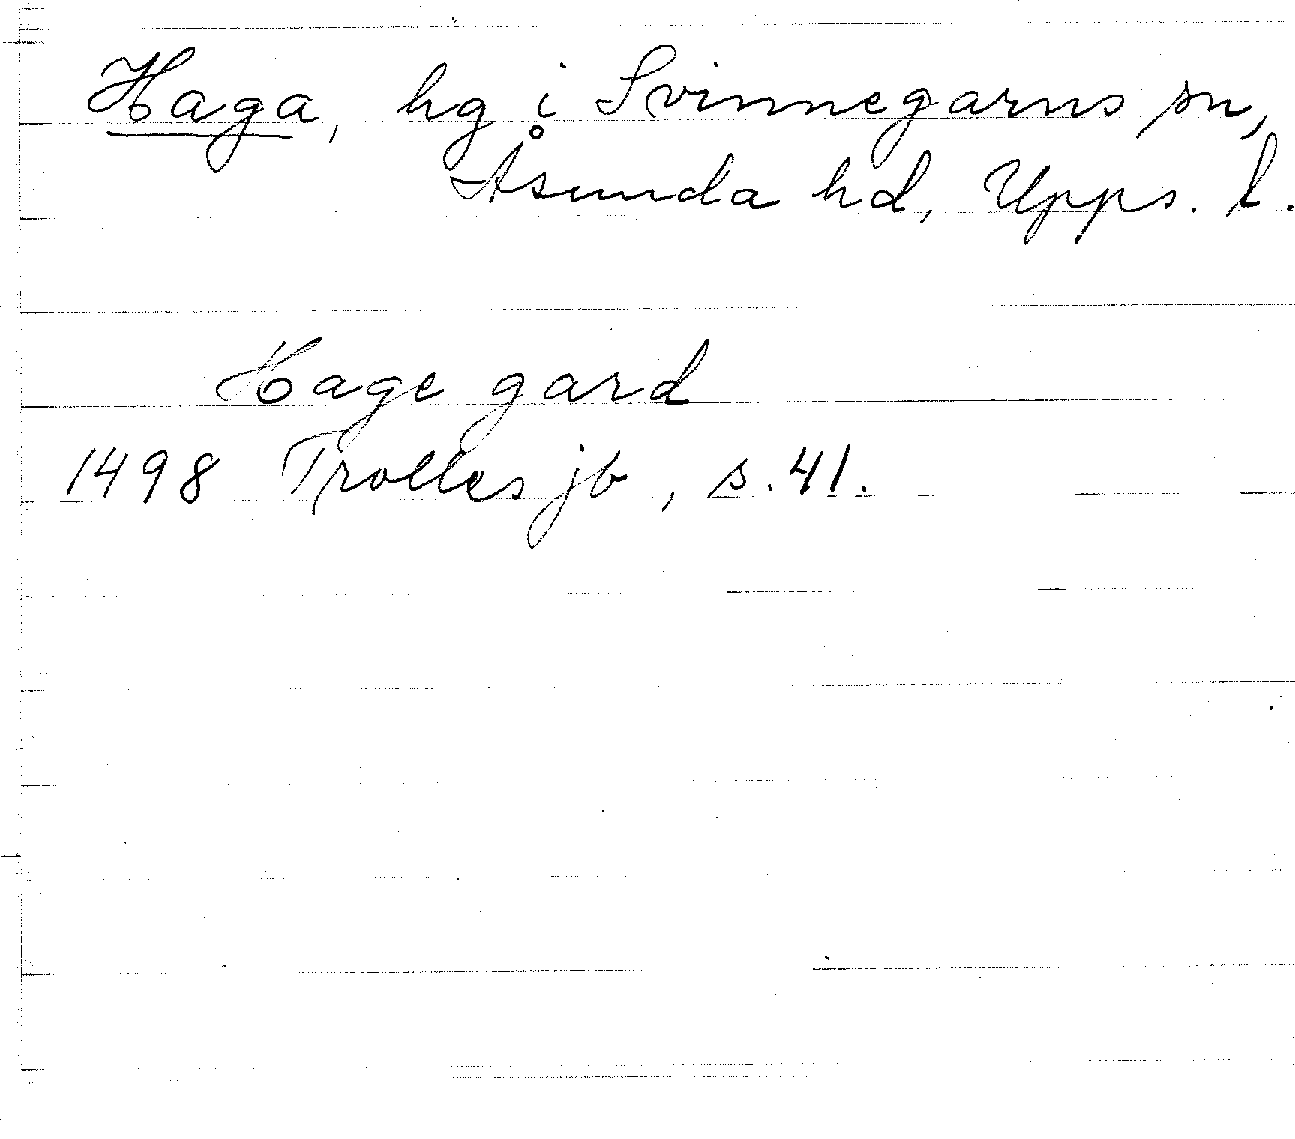 Haga, hg i Svinnegarns sn,
Åsunda hd, Upps. l.
Hage gard
1498 Trolles jb, s. 41.